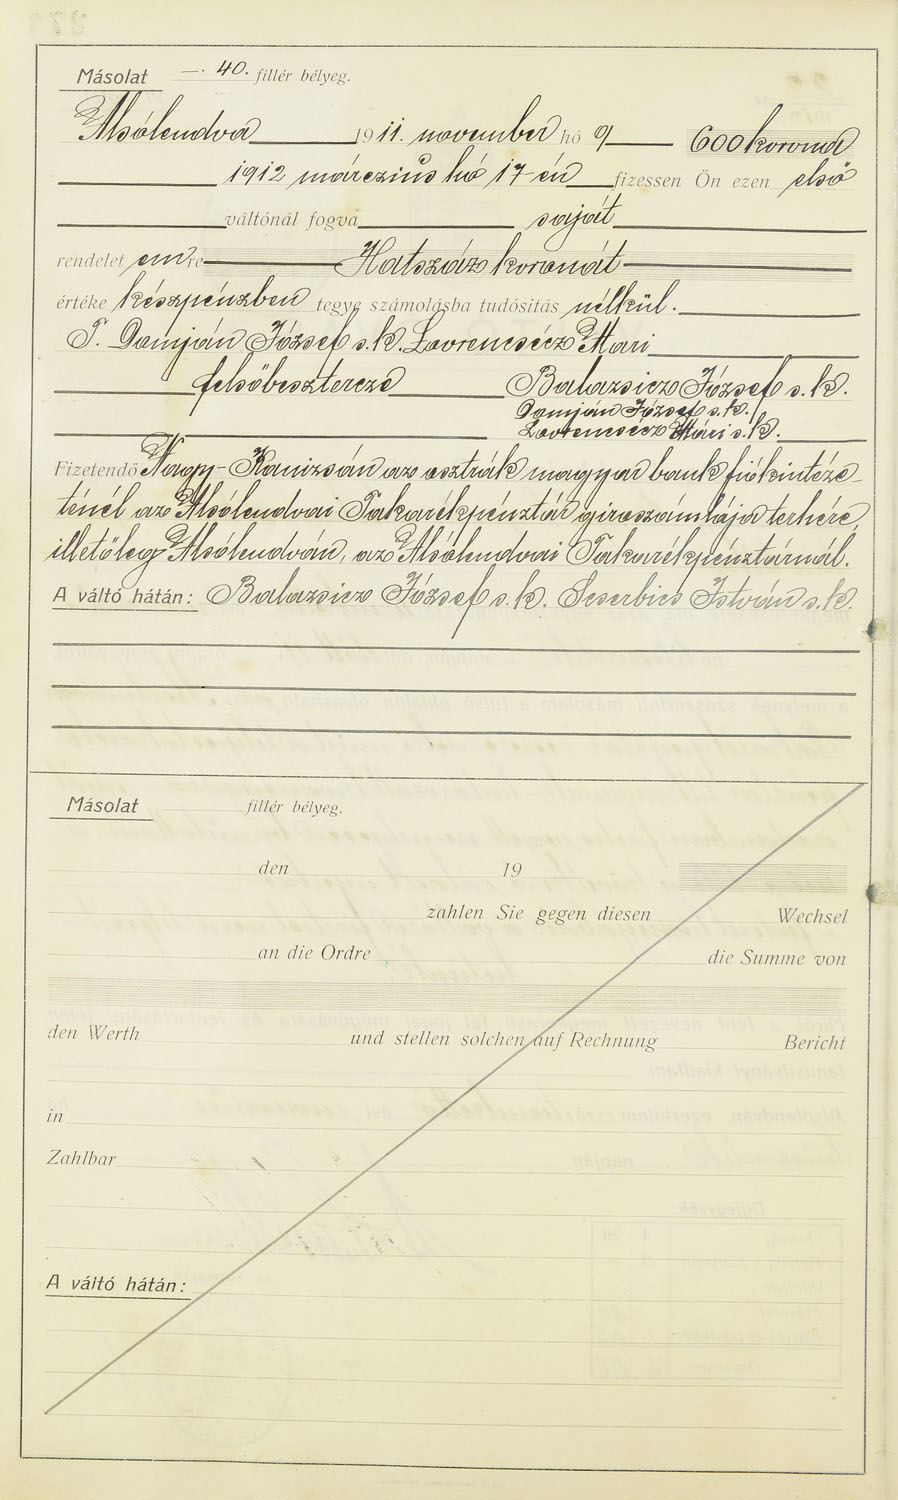 Másolat —. 40. fillér bélyeg.
Alsólendva 1911. november hó 9 600 korona
1912 márczius hó 17-én fizessen Ön ezen első
váltónál fogva saját
rendelet emre Hatszáz koronát
értéke készpénzben tegye számolásba tudósítás nélkül.
T. Damján József s.k. Lovrencsécz Mari
felsőbesztercze Balazsicz József s.k.
Damján József s.k.
Lovrencsécz Mári s.k.
Fizetendő Nagy-Kanizsán az osztrák magyar bank fiókintéze-
ténél az Alsólendvai Takarékpénztár giroszámlája terhére,
illetőleg Alsólendván, az Alsólendvai Takarékpénztárnál.
A váltó hátán: Balazsicz József s.k. István s.k.
Másolat fillér bélyeg.
den 19
zahlen Sie gegen diesen Wechsel
an die Ordre die Summe von
den Werth und stellen solchen auf Rechnung Bericht
in
Zahlbar
A váltó hátán: